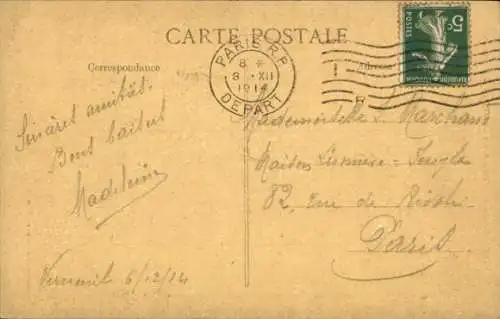 CARTE POSTALE
Correspondance
Adresse
PARIS R.P.
8 *
8 .XII
1914
DEPART
5c
POSTES
Sincères amitiés.
Bons baisers
Madeleine
Verneuil 6/12/14
Mademoiselle L. Marchand
Maison
82, rue de Rivoli
Paris